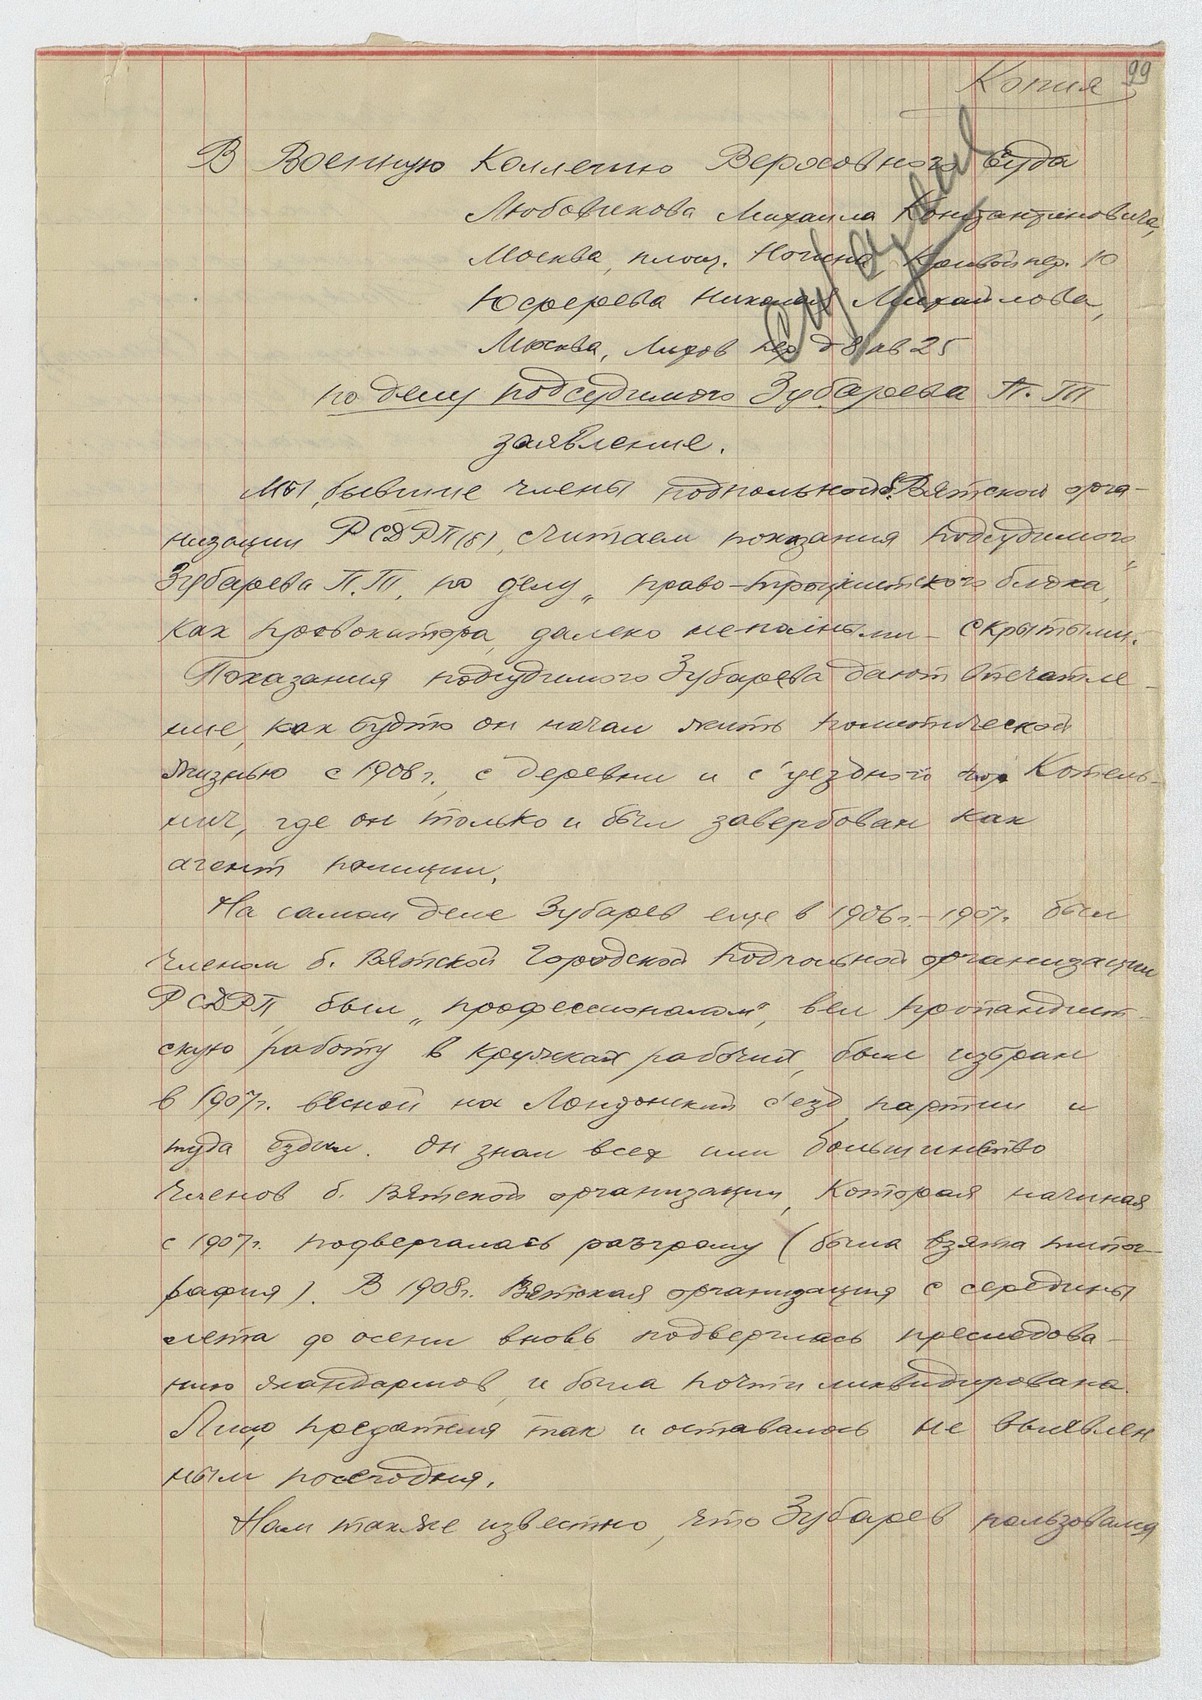 Копия 99
В Военную Коллегию Верховного Суда
Любовикова Михаила Константиновича,
Москва, площ. Ногина, Кривой пер. 10
Юферева Николая Михайлова,
Москва, Лихов пер д 8 кв 25
по делу подсудимого Зубарева П. Т
заявление.
Мы, бывшие члены подпольной б. Вятской орга-
низации РСДРП(б), считаем показания подсудимого
Зубарева П.Т. по делу „право-троцкистского блока",
как провокатора, далеко неполными - скрытыми.
Показания подсудимого Зубарева дают впечатле-
ние, как будто он начал жить политической
жизнью с 1908 г., с деревни и с уездной гор Котель-
нич, где он только и был завербован как
агент полиции.
На самом деле Зубарев еще в 1906 г. - 1907 г. был
членом б. Вятской городской подпольной организации
РСДРП был „профессионалом", вел пропагандист-
скую работу в кружках рабочих, был избран
в 1907 г. весной на Лондонский с'езд партии и
туда ездил. Он знал всех или большинство
членов б. Вятской организации, которая начиная
с 1907 г. подвергалась разгрому (была взята типог-
рафия). В 1908 г. Вятская организация с середины
лета до осени вновь подверглась преследова-
нию жандармов и была почти ликвидирована.
Лицо предателя так и оставалось не выявлен
ным посегодня.
Нам также известно, что Зубарев пользовался